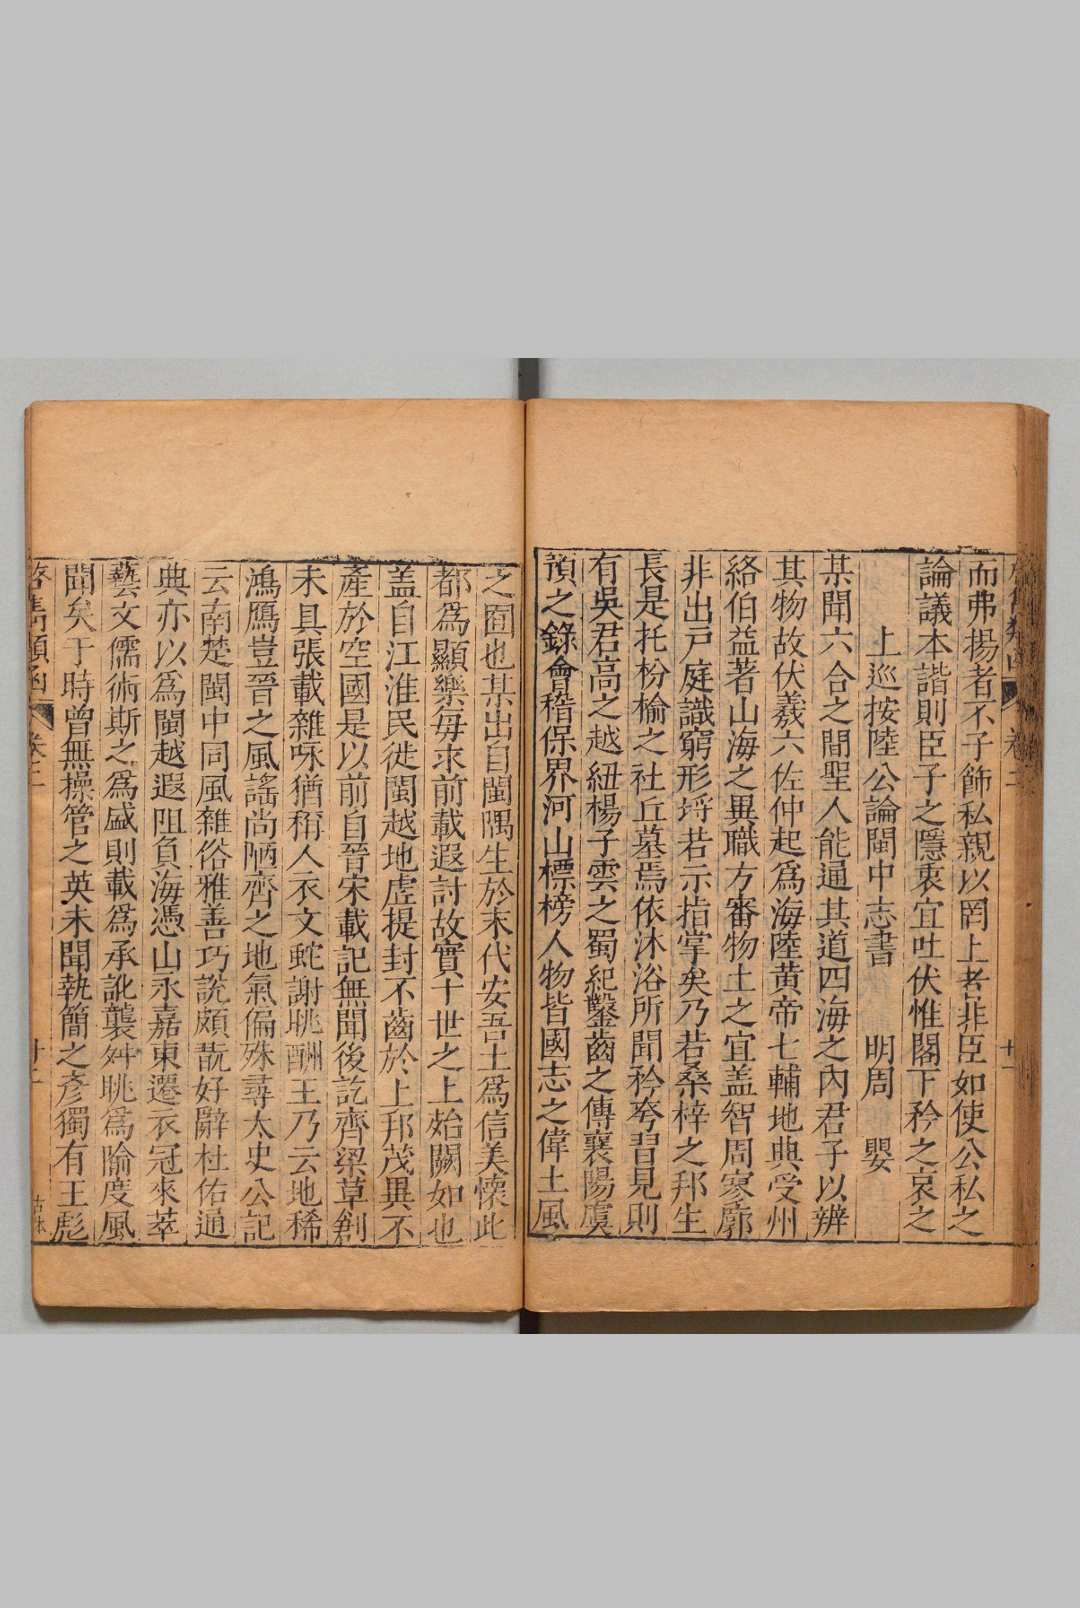 而弗揚者不子飾私親以罔上者非臣如使公私之
論議本諧則臣子之隱衷宜吐伏惟閣下矜之哀之
上巡按陸公論閩中志書　明周　嬰
某聞六合之間聖人能通其道四海之內君子以辨
其物故伏羲六佐仲起為海陸黃帝七輔地典受州
絡伯益著山海之異職方審物土之宜盖智周寥廓
非出戸庭識窮形埒若示指掌矣乃若桑梓之邦生
長是托枌榆之社丘墓焉依沐浴所聞矜夸習見則
有吳君高之越紐楊子雲之蜀紀鑿齒之傳襄陽虞
預之錄會稽保界河山標榜人物皆國志之偉土風
之囿也某出自閩隅生於末代安吾土為信美懷此
都為顯樂毎求前載遐討故實十世之上始闕如也
盖自江淮民徙閩越地虛提封不齒於上邦茂異不
產於空國是以前自晉宋載記無聞後訖齊梁草創
未具張載雜咏猶稱人衣文虵謝朓酬王乃云地稀
鴻鴈豈晉之風謠尚陋齊之地氣偏殊尋太史公記
云南楚閩中同風雜俗雅善巧説頗翫好辭杜佑通
典亦以為閩越遐阻負海憑山永嘉東遷衣冠來萃
藝文儒術斯之為盛則載為承訛襲舛朓為隃度風
聞矣于時曾無操管之英未聞執簡之彥獨有王彪
卷二
十一
卷二